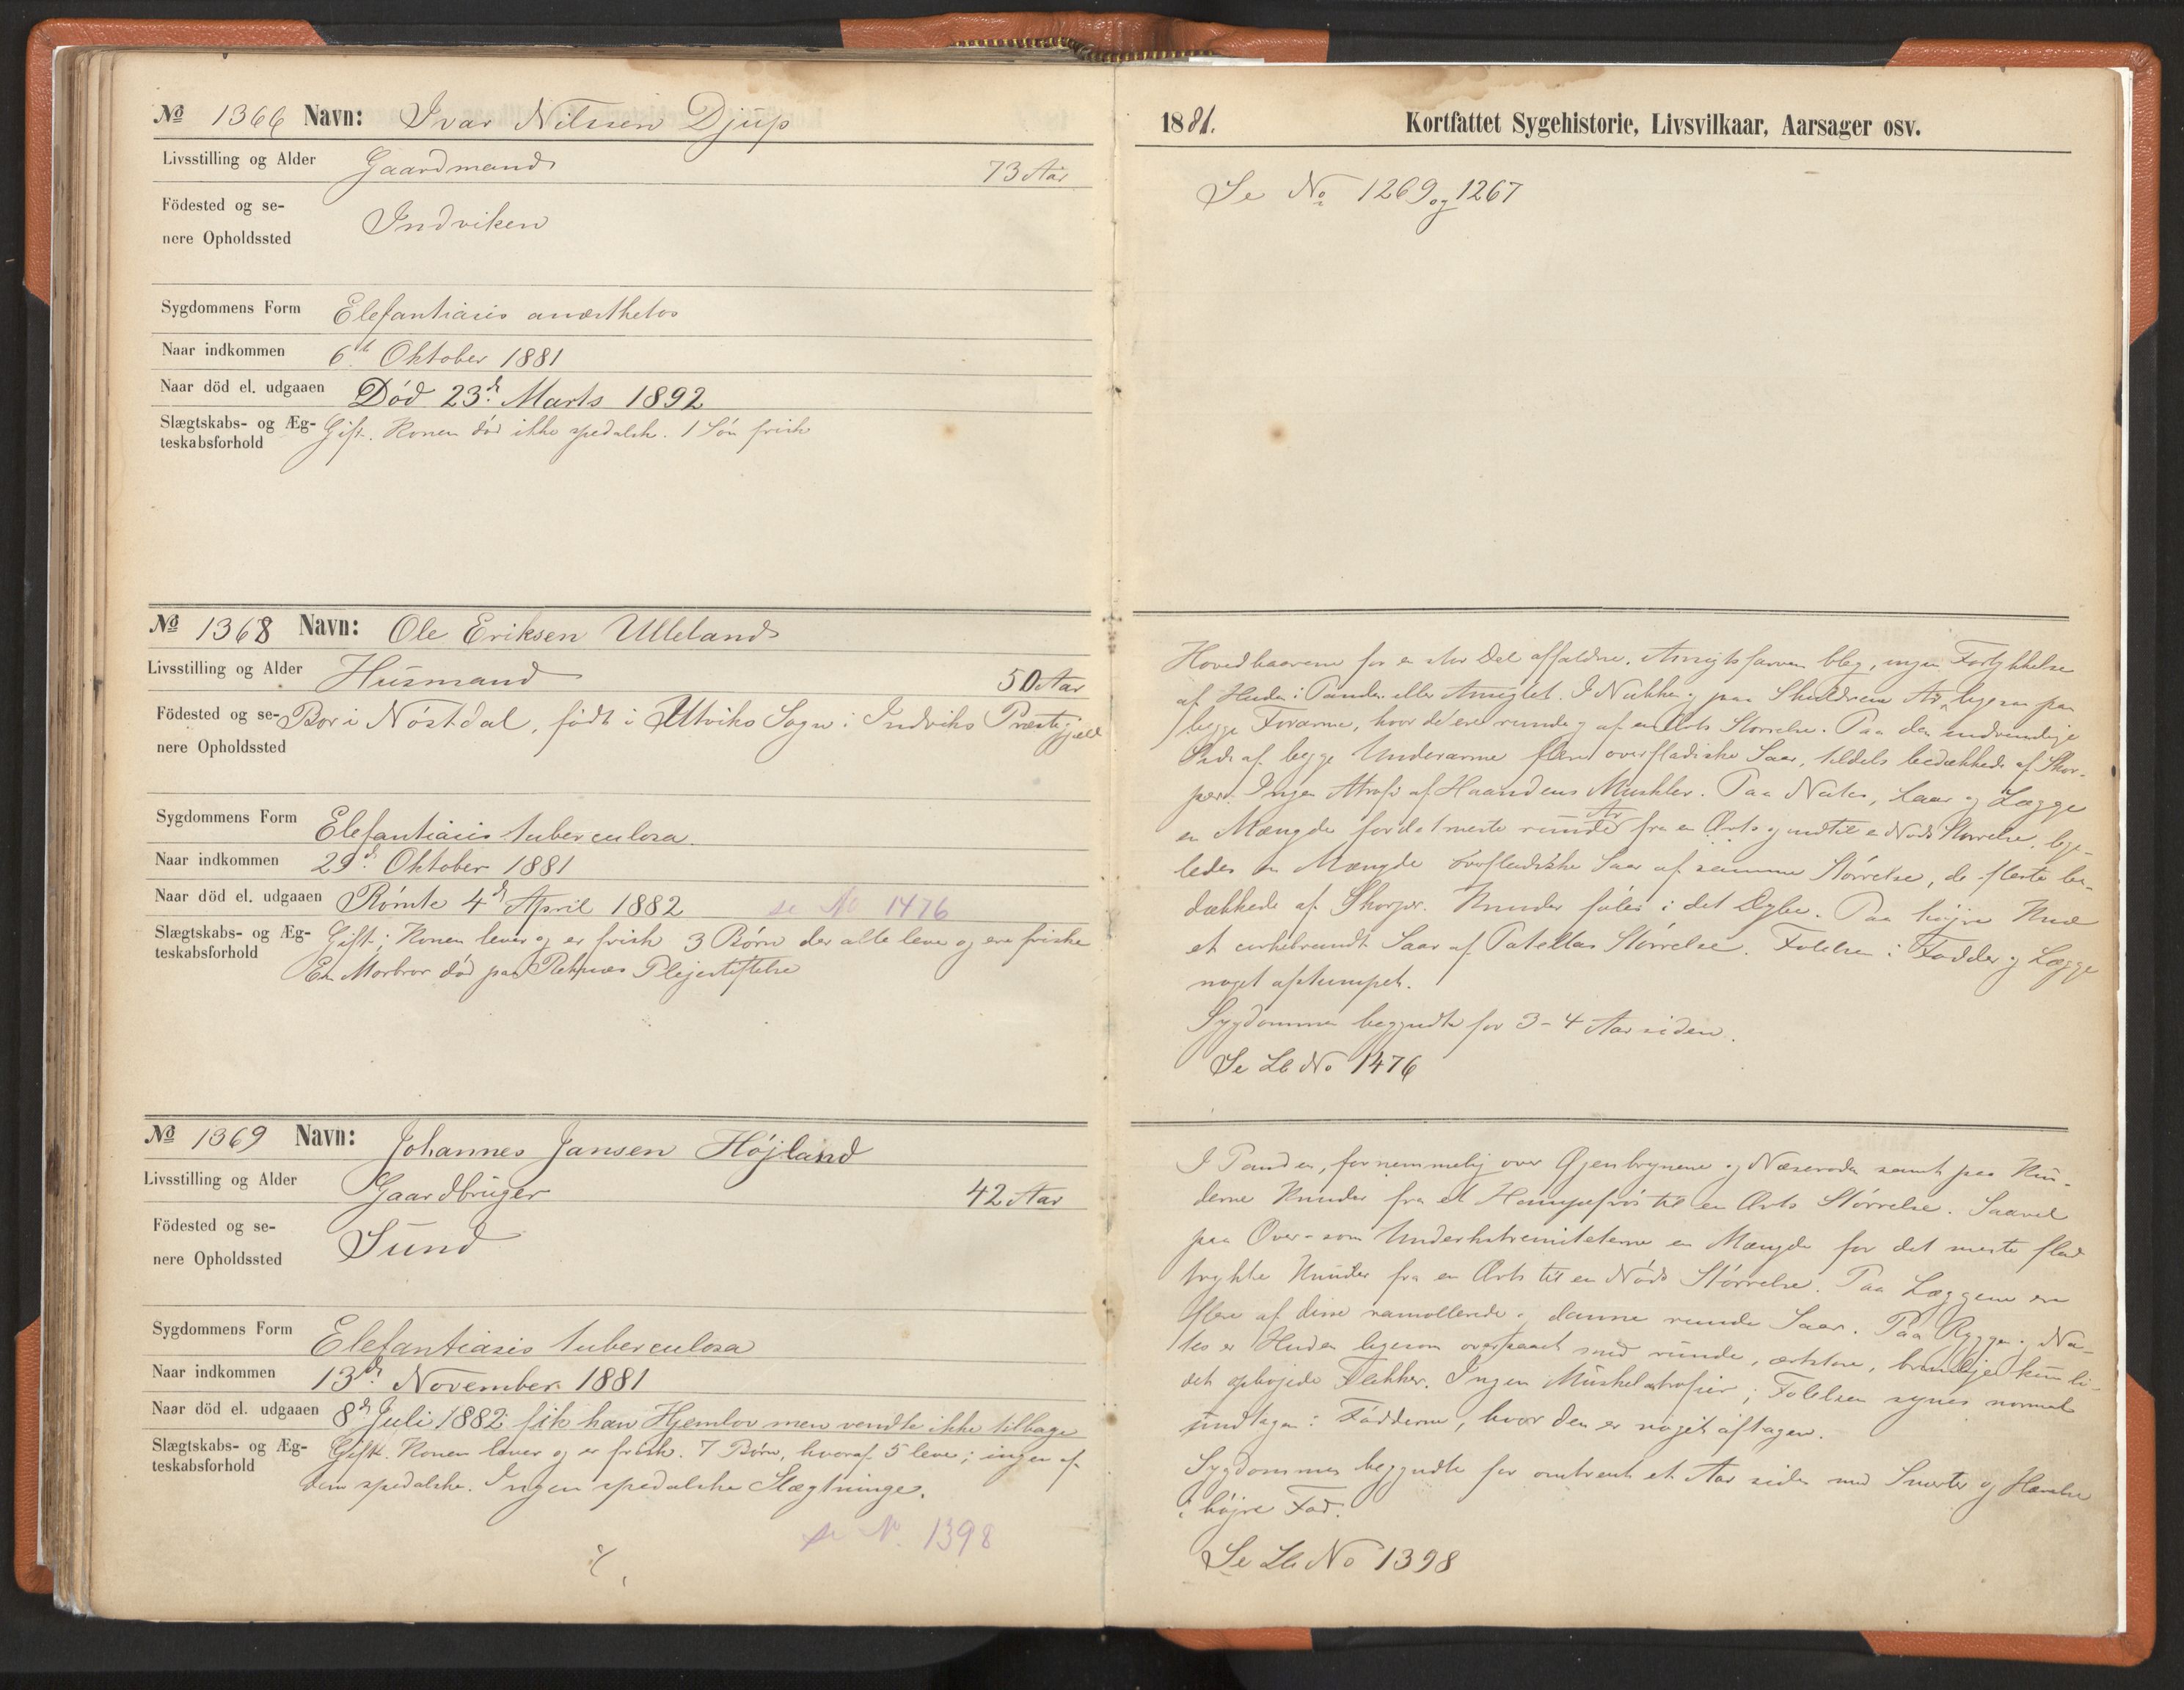 № 1366 Navn: Ivar Nilssen Djúp
Livsstilling og Alder Gaardmand 73 Aar
Födested og se-
nere Opholdssted Indviken
Sygdommens Form Elefantiasis anæsthetos
Naar indkommen 6te Oktober 1881
Naar död el. udgaaen Död 23de Marts 1892
Slægtskabs- og Æg-
teskabsforhold Gift. Konen död ikke spedalsk. 1 Sön frisk
№ 1368 Navn: Ole Eriksen Ulleland
Livsstilling og Alder Húsmand 50 Aar
Födested og se- Bor i Nöstdal, födt i Utviks Sogn i Indviks Præstegjæld
nere Opholdssted
Sygdommens Form Elefantiasis tuberculosa.
Naar indkommen 29de Oktober 1881
Naar död el. udgaaen Römte 4de April 1882 se No 1476
Slægtskabs- og Æg- Gift; Konen lever og er frisk 3 Börn der alle leve og ere friske
teskabsforhold En Morbror död paa Reknæs Plejestiftelse
№ 1369 Navn: Johannes Jansen Höjland
Livsstilling og Alder Gaardbrúger 42 Aar
Födested og se-
nere Opholdssted Súnd
Sygdommens Form Elefantiasis tuberculosa
Naar indkommen 13de November 1881
Naar död el. udgaaen 8de Juli 1882 fik han Hjemlov men vendte ikke tilbage
Slægtskabs- og Æg- Gift. Konen lever og er frisk. 7 Börn, hvoraf 5 leve; ingen af
teskabsforhold dem spedalske. Ingen spedalske Slægtninge.
se No. 1398
1881. Kortfattet Sygehistorie, Livsvilkaar, Aarsager osv.
Se No 1269 og 1267
Hovedhaarene for en stor Del affaldne. Ansigtsfarven bleg, ingen Fortykkelse
af Huden i Panden eller Ansigtet. I Nakken og paa Skuldrene Ar, ligesom paa
begge Forarme, hvor de ere runde og af en Ærts Störrelse. Paa den indvendige
Side af begge Underarme flere overfladiske Saar, tildels bedækkede af Skor-
per. Ingen Atrofi af Haandens Muskler. Paa Nates, Laar og Lægge
en Mængde for det meste runde Ar fra en Ærts og indtil en Nöds Störrelse, lige-
ledes en Mængde overfladiske Saar af samme Störrelse, de fleste be-
dækkede af Skorper. Knuder föles i det Dybe. Paa höjre Knæ
et cirkelrundt Saar af Patellas Störrelse. Fölelsen i Födder og Lægge
noget afstumpet.
Sygdommen begyndte for 3-4 Aar siden.
Se Lb No 1476
I Panden, fornemmelig over Öjenbrynene og Næseroden samt paa Kin-
derne Knuder fra et Hampefrös til en Ærts Störrelse. Saavel
paa Over- som Underkstremiteterne en Mængde for det meste flad
trykte Knúder fra en Ærts til en Nöds Störrelse. Paa Læggene ere
flere af disse ramollerede og danne runde Saar. Paa Ryggen og Na-
tes er Huden ligesom oversaaet med runde, ærtstore, brunlige kun li-
det ophöjede Flekker. Ingen Múskelatrofier; Fölelsen synes normal
undtagen i Födderne, hvor den er noget aftagen.
Sygdommen begyndte for omtrent et Aar siden med Smerte og Hævelse
i höjre Fod.
Se Lb No 1398